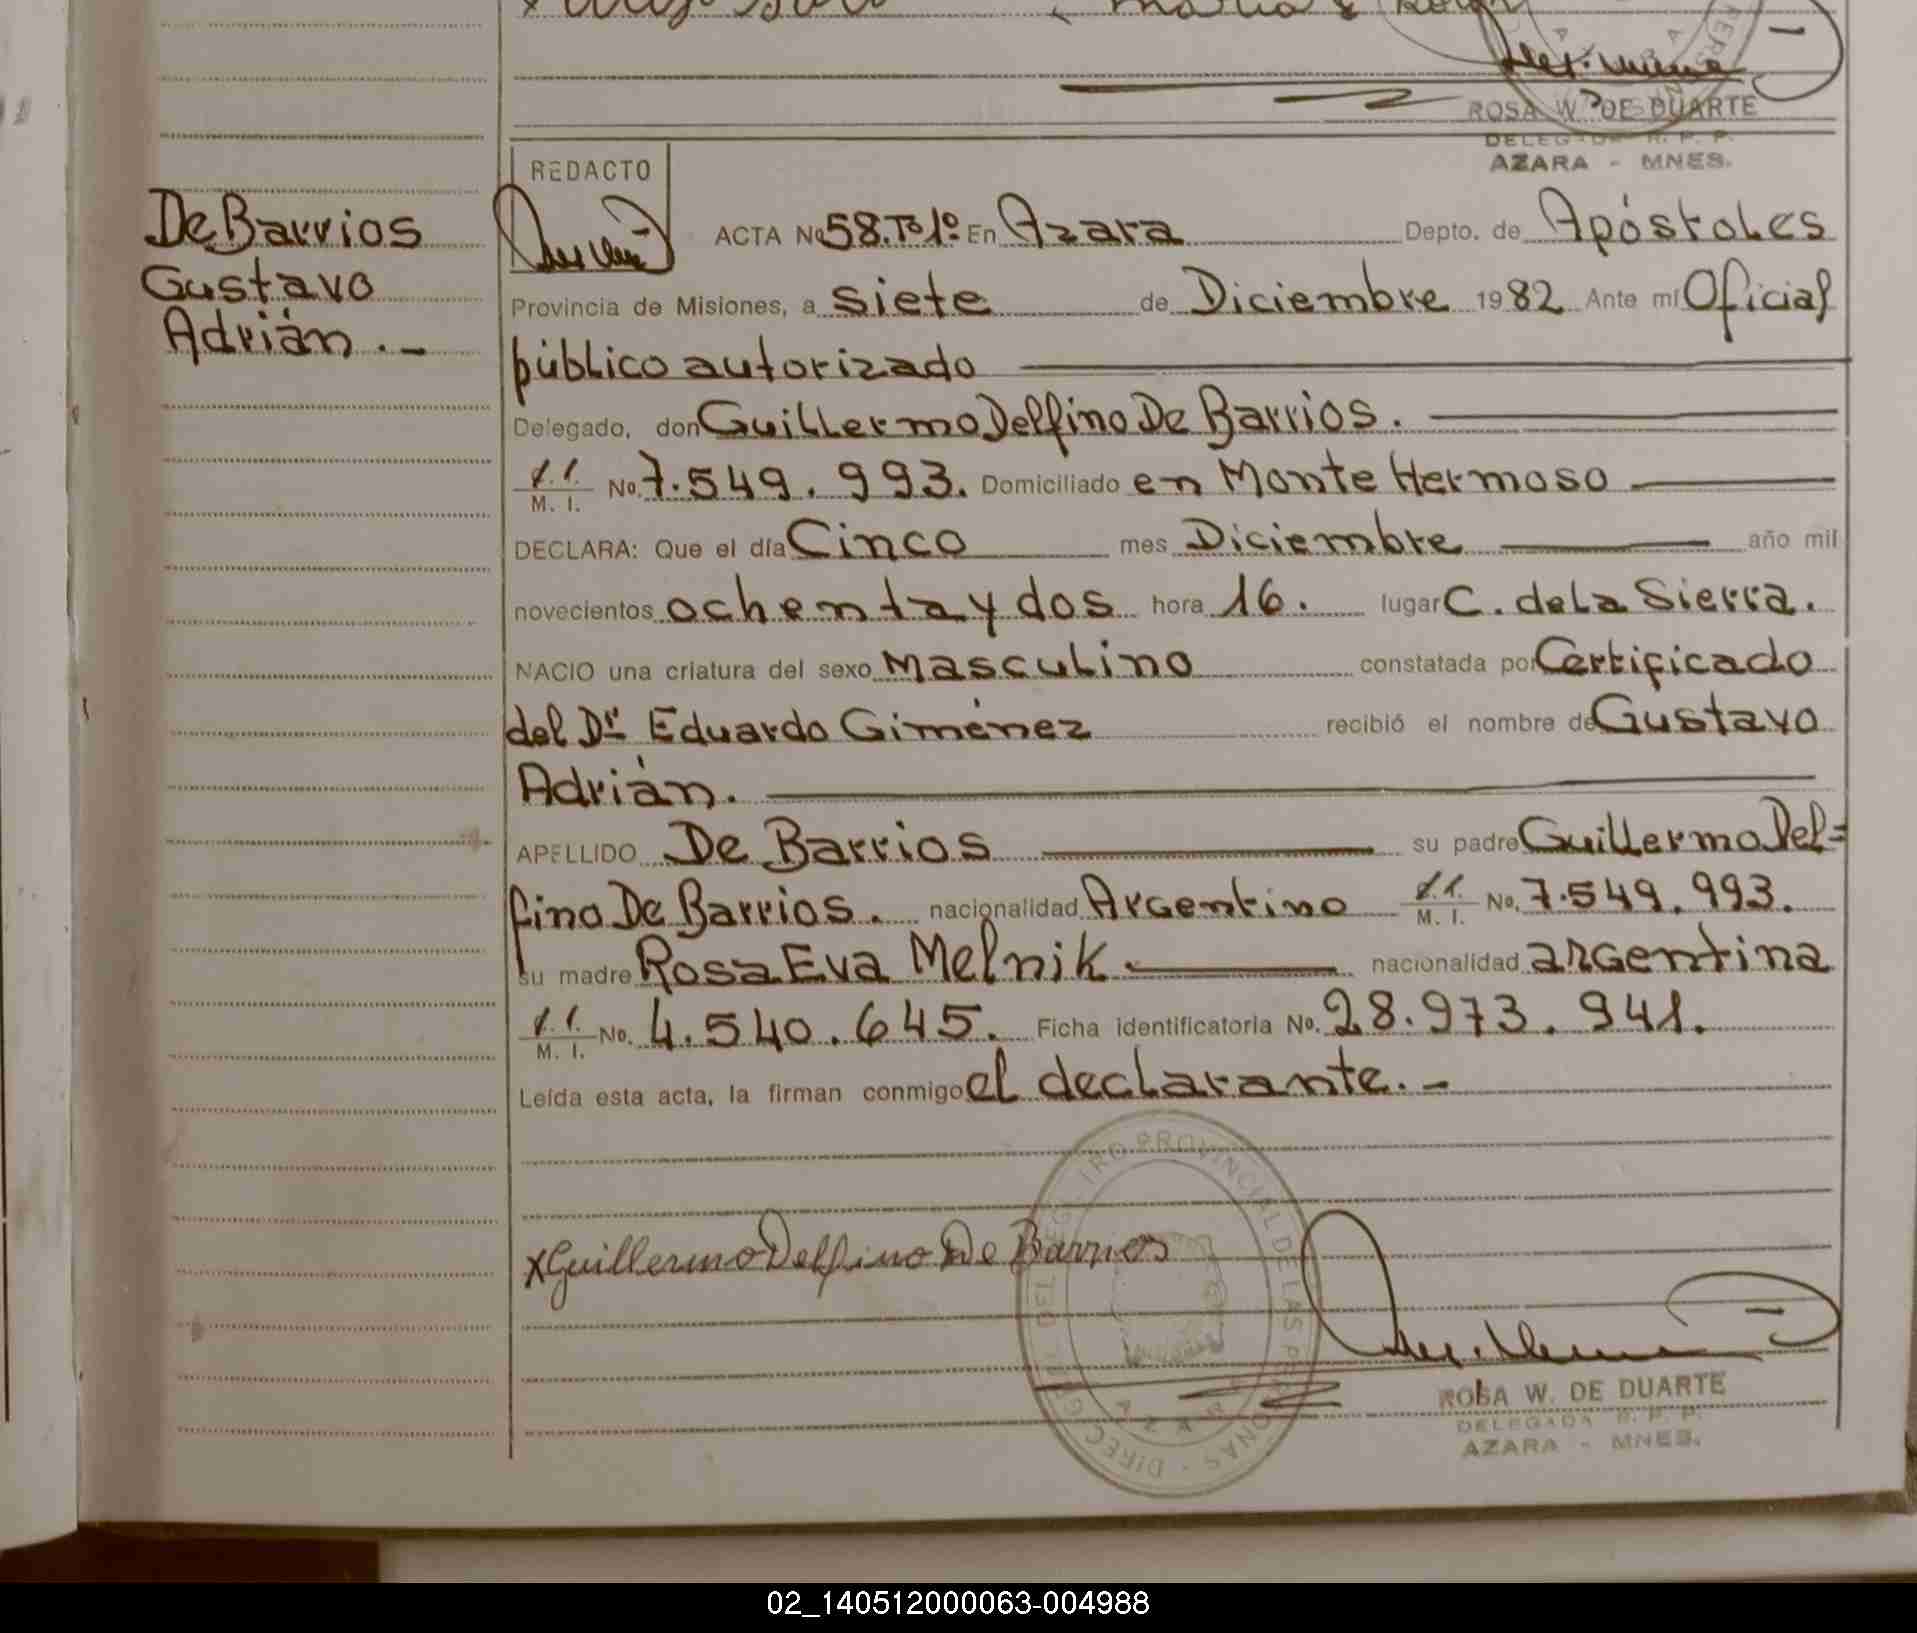 ROSA W. DE DUARTE
DELEGADA R. P. P.
AZARA - MNES.
De Barrios
Gustavo
Adrián.-
REDACTO
ACTA No 58. To 1º En Azara Depto. de Apóstoles
Provincia de Misiones, a siete de Diciembre 1982 Ante mí Oficial
público autorizado
Delegado, don Guillermo Delfino De Barrios.
M. I. No. 7.549.993. Domiciliado en Monte Hermoso
DECLARA: Que el día Cinco mes Diciembre año mil
novecientos ochenta y dos hora 16. lugar C. de la Sierra.
NACIO una criatura del sexo Masculino constatada por Certificado
del Dr Eduardo Giménez recibió el nombre de Gustavo
Adrián.
APELLIDO De Barrios su padre Guillermo Del=
fino De Barrios. nacionalidad Argentino M. I. No. 7.549.993.
su madre Rosa Eva Melnik nacionalidad argentina
M. I. No. 4.540.645. Ficha identificatoria No. 28.973.941.
Leída esta acta, la firman conmigo el declarante.-
x Guillermo Delfino De Barrios
ROSA W. DE DUARTE
DELEGADA R. P. P.
AZARA - MNES.
02_140512000063-004988